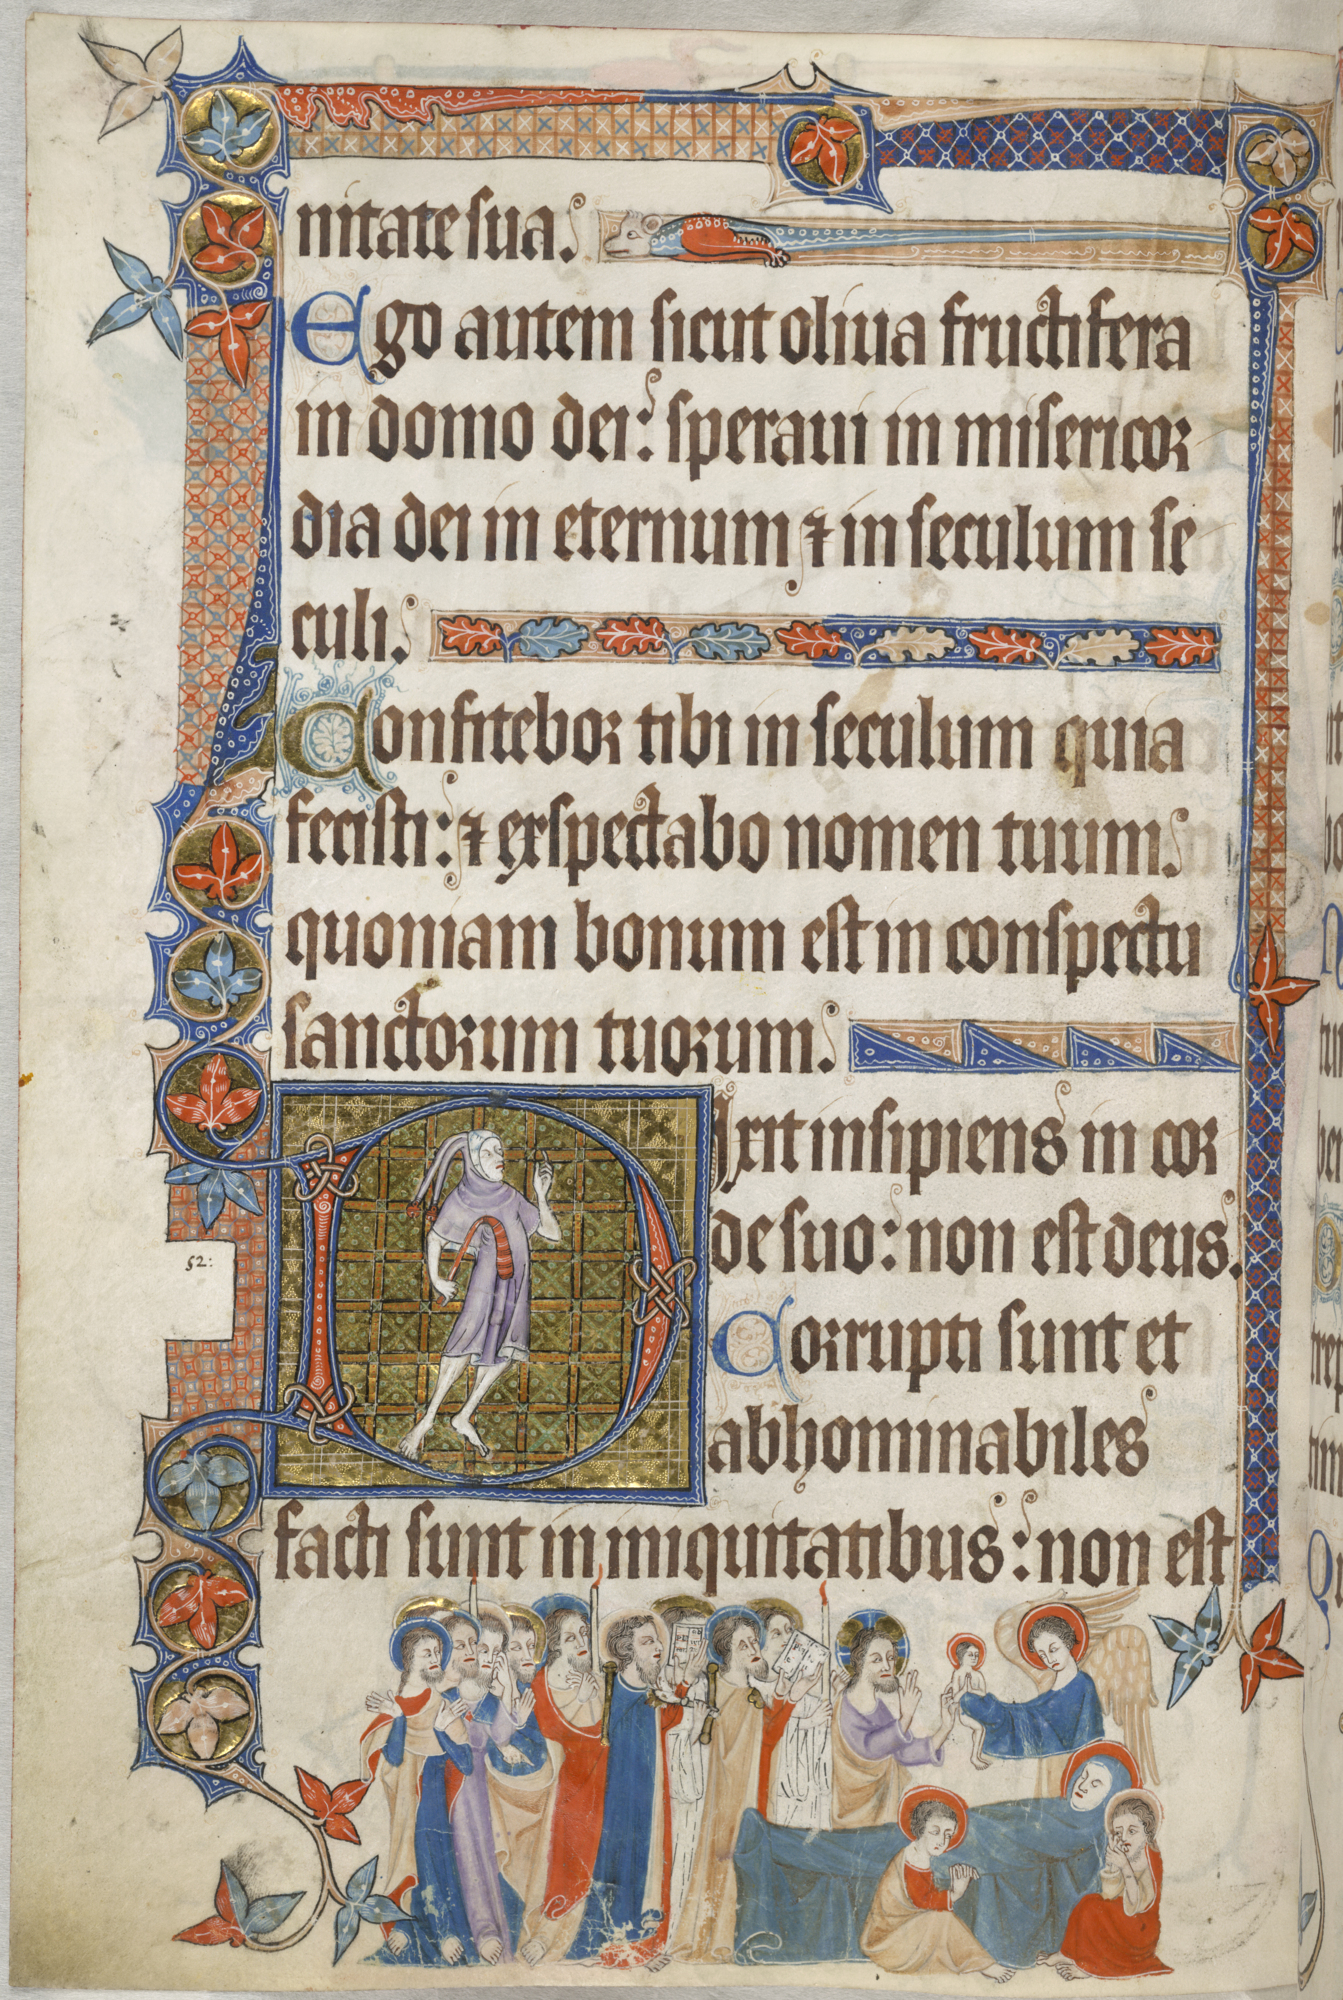 nitate sua.
Ego autem sicut oliua fructifera
in domo dei: speraui in misericor
dia dei in eternum ⁊ in seculum se
culi.
Confitebor tibi in seculum quia
fecisti: ⁊ exspectabo nomen tuum.
quoniam bonum est in conspectu
sanctorum tuorum.
Dixit insipiens in cor
de suo: non est deus.
52:
Corrupti sunt et
abhominabiles
facti sunt in iniquitatibus: non est